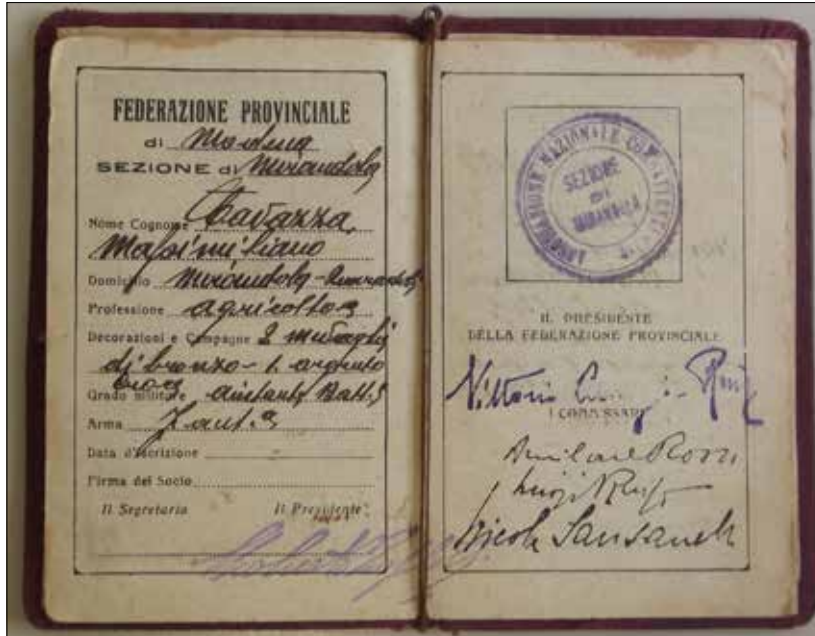 FEDERAZIONE PROVINCIALE
di Modena
SEZIONE di Mirandola
Nome Cognome Tavazza
Massimiliano
Domicilio Mirandola -
Professione agricoltore
Decorazioni e Campagne 2 medaglie
di bronzo - 1 argento
Grado militare aiutante Batt.
Arma
Data d'iscrizione
Firma del Socio
Il Segretario Il Presidente
ASSOCIAZIONE NAZIONALE COMBATTENTI
SEZIONE
DI
MIRANDOLA
IL PRESIDENTE
DELLA FEDERAZIONE PROVINCIALE
Vittorio
I COMMISSARI
Amilcare Rossi
Luigi Russo
Nicola Sansanelli